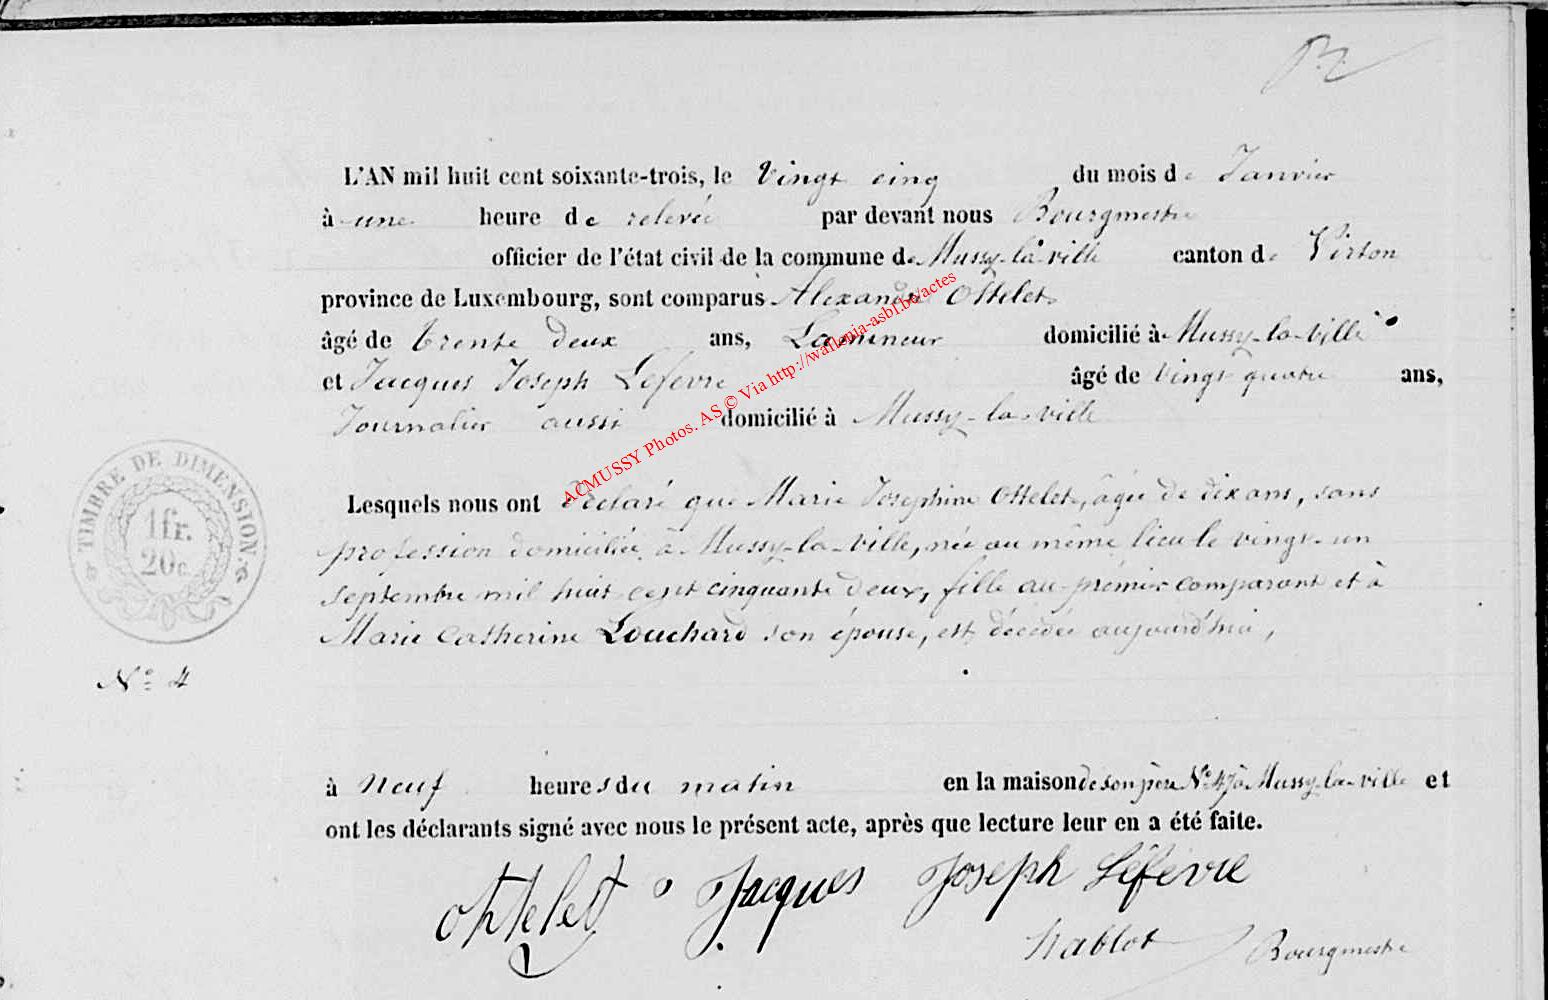 L'AN mil huit cent soixante-trois, le vingt cinq du mois de Janvier
à une heure de relevée par devant nous Bourgmestre
officier de l'état civil de la commune de Mussy-la-ville canton de Virton
province de Luxembourg, sont comparus Alexandre Ottelet
âgé de trente deux ans, Lamineur domicilié à Mussy-la-ville
et Jacques Joseph Lefevre âgé de vingt quatre ans,
Journalier aussi domicilié à Mussy-la-ville
ACMUSSY Photos. AS © Via http://wallonia-asbl.be/actes
TIMBRE DE DIMENSION
1fr.
20c
Lesquels nous ont déclaré que Marie Josephine Ottelet, âgée de dix ans, sans
profession domiciliée à Mussy-la-ville, née au même lieu le vingt-un
septembre mil huit cent cinquante deux, fille au prémier comparant et à
Marie Catherine Louchard son épouse, est décédée aujourd'hui,
N° 4
à Neuf heures du matin en la maison de son père N° 47 à Mussy-la-ville et
ont les déclarants signé avec nous le présent acte, après que lecture leur en a été faite.
Ottelet Jacques Joseph Lefevre
Nablot Bourgmestre